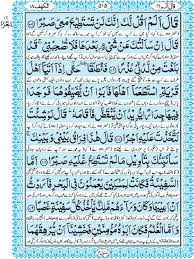 قال الم ١٦
الكهف ١٨
قَالَ اَلَمْ اَقُلْ لَّكَ اِنَّكَ لَنْ تَسْتَطِيْعَ مَعِيَ صَبْرًا
قَالَ اِنْ سَاَلْتُكَ عَنْ شَيْءٍۭ بَعْدَهَا فَلَا تُصٰحِبْنِيْ قَدْ
بَلَغْتَ مِنْ لَّدُنِّيْ عُذْرًا فَانْطَلَقَا حَتّٰۤى اِذَاۤ اَتَيَاۤ اَهْلَ
قَرْيَةِ اسْتَطْعَمَاۤ اَهْلَهَا فَاَبَوْا اَنْ يُّضَيِّفُوْهُمَا فَوَجَدَا
فِيْهَا جِدَارًا يُّرِيْدُ اَنْ يَّنْقَضَّ فَاَقَامَهٗ قَالَ لَوْ شِئْتَ
لَتَّخَذْتَ عَلَيْهِ اَجْرًا قَالَ هٰذَا فِرَاقُ بَيْنِيْ وَبَيْنِكَ
سَاُنَبِّئُكَ بِتَاْوِيْلِ مَا لَمْ تَسْتَطِعْ عَّلَيْهِ صَبْرًا اَمَّا
السَّفِيْنَةُ فَكَانَتْ لِمَسٰكِيْنَ يَعْمَلُوْنَ فِي الْبَحْرِ فَاَرَدْتُّ
اَنْ اَعِيْبَهَا وَكَانَ وَرَآءَهُمْ مَّلِكٌ يَّاْخُذُ كُلَّ سَفِيْنَةٍ غَصْبًا
وَاَمَّا الْغُلٰمُ فَكَانَ اَبَوٰهُ مُؤْمِنَيْنِ فَخَشِيْنَاۤ اَنْ يُّرْهِقَهُمَا